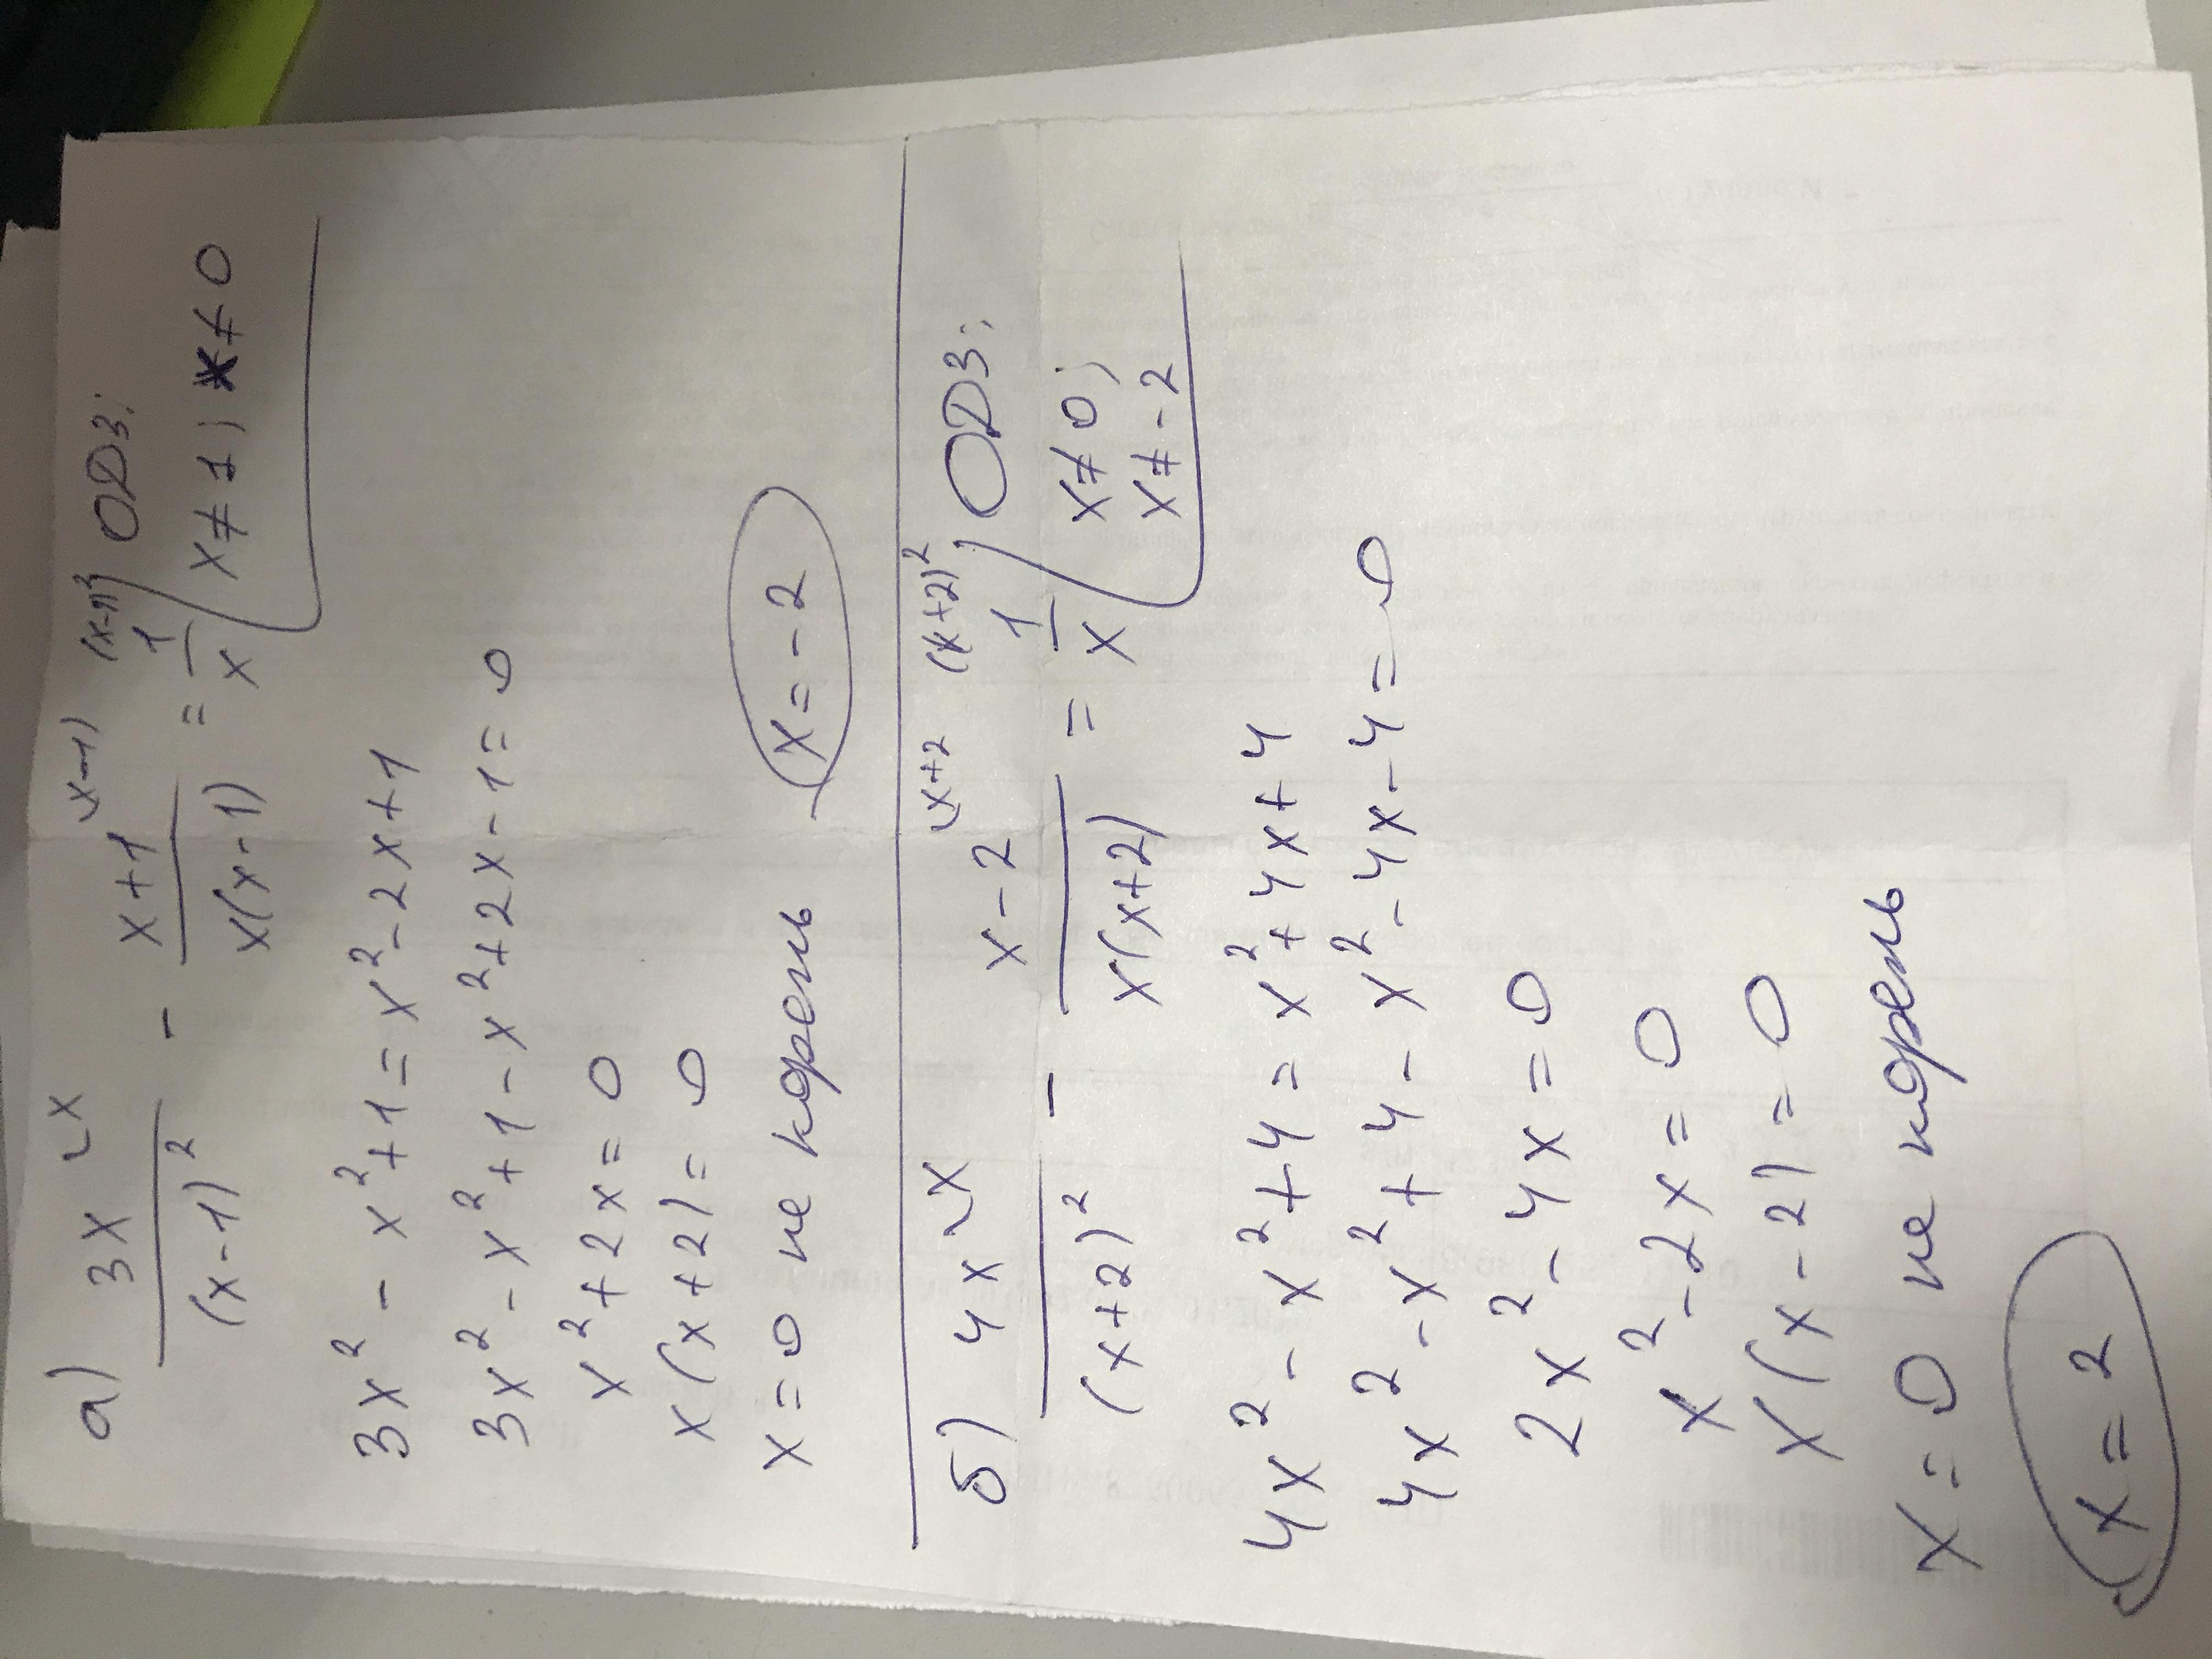 а) 3x ᴸx / (x-1)² - x+1 ᴸ(x-1) / x(x-1) = 1 (x-1)² / x ОДЗ:
x≠1; x≠0
3x² - x²+1 = x²-2x+1
3x²-x²+1-x²+2x-1=0
x²+2x=0
x(x+2)=0
x=0 не корень x=-2
б) 4x ᴸx / (x+2)² - x-2 ᴸx+2 / x(x+2) = 1 (x+2)² / x ОДЗ:
x≠0;
x≠-2
4x²-x²+4=x²+4x+4
4x²-x²+4-x²-4x-4=0
2x²-4x=0
x²-2x=0
x(x-2)=0
x=0 не корень
x=2